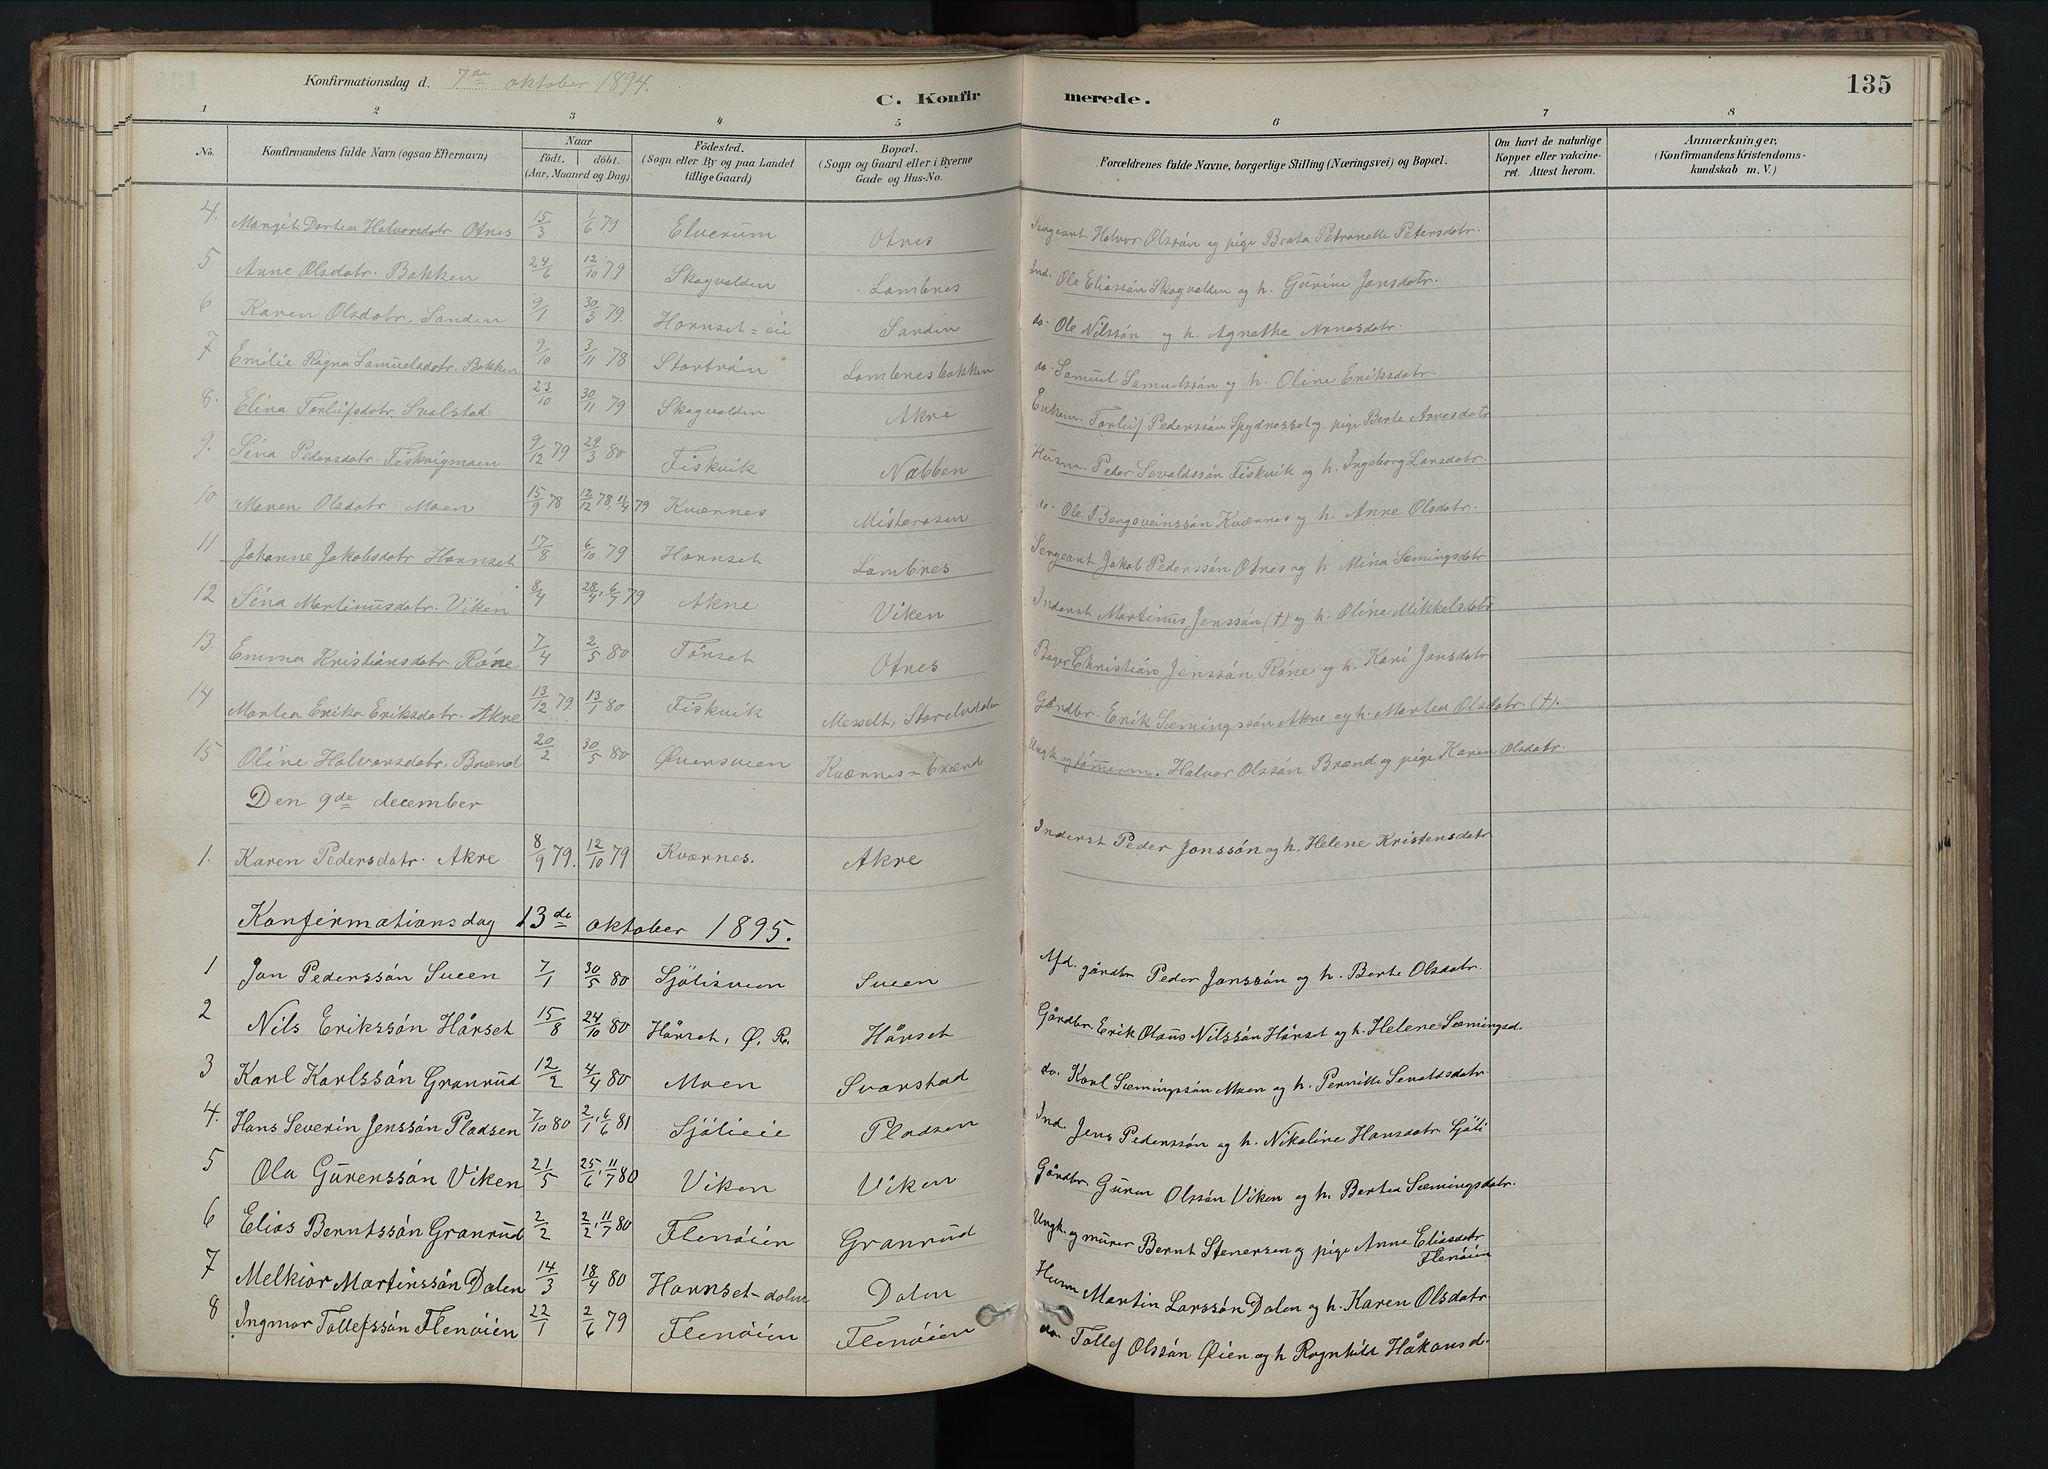 Konfirmationsdag d. 7de oktober 1894.
C. Konfirmerede.
135
1 2 3 4 5 6 7 8
No. Konfirmandens fulde Navn (ogsaa Efternavn) Naar født. døbt. (Aar, Maaned og Dag) Fødested. (Sogn eller By og paa Landet tillige Gaard) Bopæl. (Sogn og Gaard eller i Byerne Gade og Hus-No. Forældrenes fulde Navne, borgerlige Stilling (Næringsvei) og Bopæl. Om havt de naturlige Kopper eller vakcineret. Attest herom. Anmærkninger, (Konfirmandens Kristendomskundskab m. V.)
4. Margit Dortea Halvorsdatr. Otnes 15/3 1/6 79 Elverum Otnes Sergeant Halvor Olssøn og pige Beata Petronelle Petersdatr.
5 Anne Olsdatr. Bakken 24/6 12/10 79 Skogvolden Lombnes Ind. Ole Eliassøn Skogvolden og h. Gurine Jonsdatr.
6 Karen Olsdatr. Sanden 9/1 30/3 79. Hornset=eie Sanden do. Ole Nilssøn og h. Agnethe Arnesdatr.
7 Emilie Ragna Samuelsdatr. Bakken 9/10 3/11 78 Stortrøen Lombnesbakken do. Samuel Samuelssøn og h. Oline Eriksdatr.
8. Elina Torlufsdatr. Svalstad 23/10 30/11 79 Skogvolden Akre Enkem. Torluf Pederssøn Spydnesset og pige Berte Arnesdatr
9. Sina Pedersdatr. Fiskvigmoen 9/12 79 29/3 80 Fiskvik Næbben Husm. Peder Sevaldssøn Fiskvik og h. Ingeborg Larsdatr.
10 Maren Olsdatr. Moen 15/9 78 12/12 78, 11/4 79 Kværnes Misterosen do. Ole Bergsveinssøn Kværnes og h. Anne Olsdatr.
11 Johanne Jakobsdatr Hornset 17/8 6/10 79 Hornset Lombnes Sergeant Jakob Pederssøn Otnes og h Mina Sæmingsdatr
12 Sina Martinusdatr. Viken 8/4 28/4, 6/7 79 Akre Viken Inderst Martinus Jenssøn (†) og h. Oline Mikkelsdatr
13. Emma Kristiansdatr. Røne 7/4 2/5 80 Tønset Otnes Bager Christian Jenssøn Røne og h. Kari Jonsdatr
14 Martea Erika Eriksdatr. Akre 13/12 79. 13/1 80 Fiskvik Messelt, Storelvdalen Gårdbr. Erik Sæmingssøn Akre og h. Martea Olsdatr. (†).
15 Oline Halvorsdatr. Brænd 20/2 30/5 80 Øversveen Kværnes=brænd Ungk. og tømerm. Halvor Olssøn Brænd og pige Karen Olsdatr.
Den 9de december
1. Karen Pedersdatr. Akre 8/9 79. 12/10 79 Kværnes. Akre Inderst Peder Jonssøn og h. Helene Kristensdatr
Konfirmationsdag 13de oktober 1895.
1 Jon Pederssøn Sveen 7/1 30/5 80 Sjølisveen Sveen Afd. gårdbr Peder Jonssøn og h. Berte Olsdatr.
2 Nils Erikssøn Hårset 15/8 24/10 80 Hårset, Ø. R. Hårset Gårdbr. Erik Olaus Nilssøn Hårset og h. Helene Sæmingsd.
3 Karl Karlssøn Granrud 12/2 4/4 80 Moen Svarstad do. Karl Sæmingssøn Moen og h. Pernille Sevaldsdatr.
4. Hans Severin Jenssøn Pladsen 7/10 80 2/1, 6/6 81 Sjølieie Pladsen Ind Jens Pederssøn og h. Nikoline Hansdatr. Sjøli
5 Ola Gurenssøn Viken 21/5 25/6, 11/7 80 Viken Viken Gårdbr Guren Olssøn Viken og h. Bertea Sæmingsdatr.
6 Elias Berntssøn Granrud 2/2 2/2, 11/7 80 Flenøien Granrud Ungk. og murer Bernt Stenersen og pige Anne Eliasdatr Flenøien
7 Melkior Martinssøn Dalen 14/3 18/4 80 Hornset=dalen Dalen Husm Martin Larssøn Dalen og h. Karen Olsdatr
8 Ingmar Tollefssøn Flenøien 22/1 2/6 79 Flenøien Flenøien do. Tollef Olssøn Øien og h Ragnhild Håkonsd.